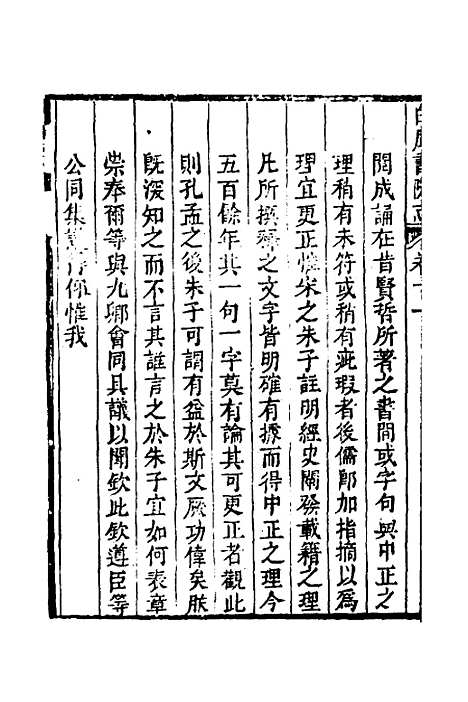 白鹿書院志 卷十一
閱成誦在昔賢哲所著之書間或字句與中正之
理稍有未符或稍有疵瑕者後儒卽加指摘以為
理宜更正惟宋之朱子註明經史闡發載籍之理
凡所撰釋之文字皆明確有據而得中正之理今
五百餘年其一句一字莫有論其可更正者觀此
則孔孟之後朱子可謂有益於斯文厥功偉矣朕
既深知之而不言其誰言之於朱子宜如何表章
崇奉爾等與九卿會同具議以聞欽此欽遵臣等
公同集議得伏惟我